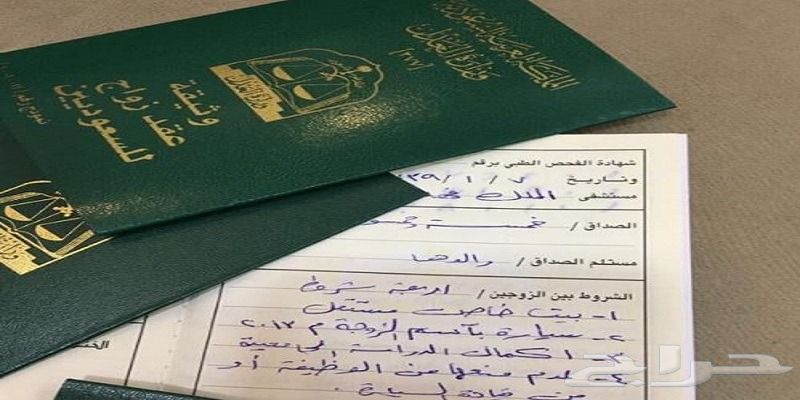 المملكة العربية السعودية
وزارة العدل
[٢٧٧]
وثيقة
عقد زواج
للسعوديين
وزارة العدل
شهادة الفحص الطبي برقم
وتاريخ ٢ / ١ / ٣٩
مستشفى الملك
الصداق / خمسة
مستلم الصداق / والدها
الشروط بين الزوجين / اربعة شروط
١- بيت خاص مستقل
٢- سيارة بأسم الزوجة م ٢٠١٧
٣- اكمال الدراسة الجامعية
٤- عدم منعها من الوظيفة أو
من قيادة السيارة.
حراج